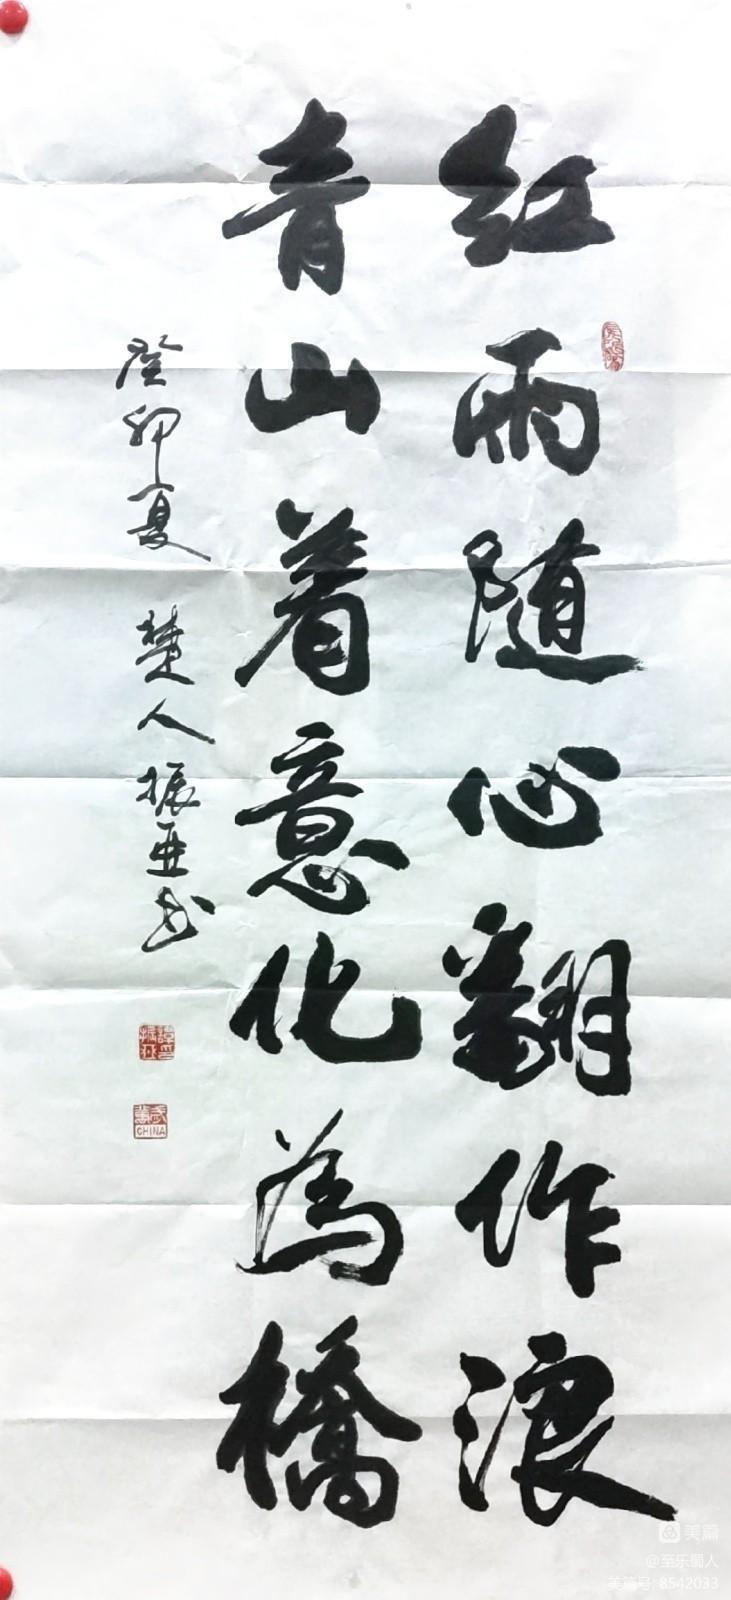 红雨随心翻作浪
青山着意化為橋
癸卯夏 楚人振亚书
CHINA
美篇
@至乐蜀人
美篇号: 8542033